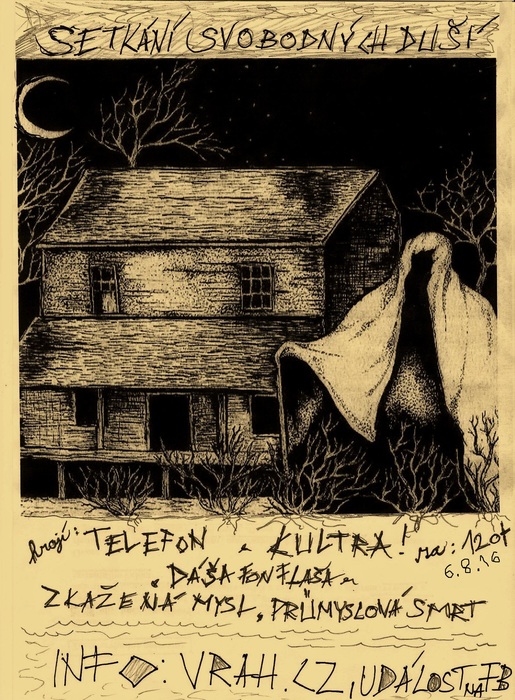 SETKÁNÍ SVOBODNÝCH DUŠÍ
hrají: TELEFON, KULTRA! za: 120+
6.8.16
DÁŠA FON FLAŠA
ZKAŽENÁ MYSL, PRŮMYSLOVÁ SMRT
INFO: VRAH.CZ, UDÁLOST NA FB